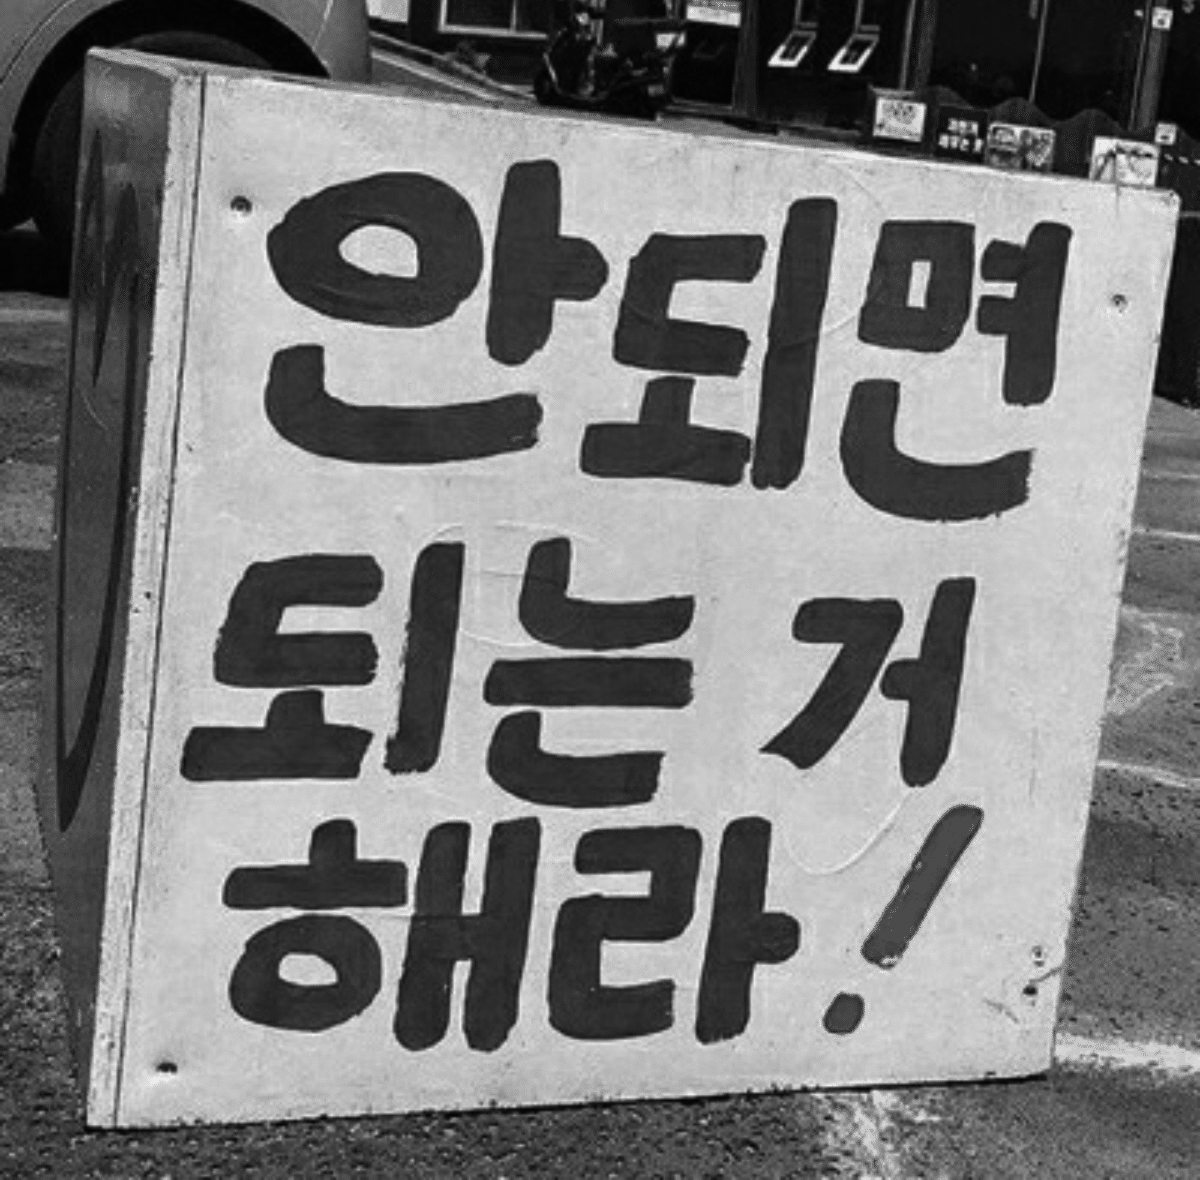 안되면
되는 거
해라!